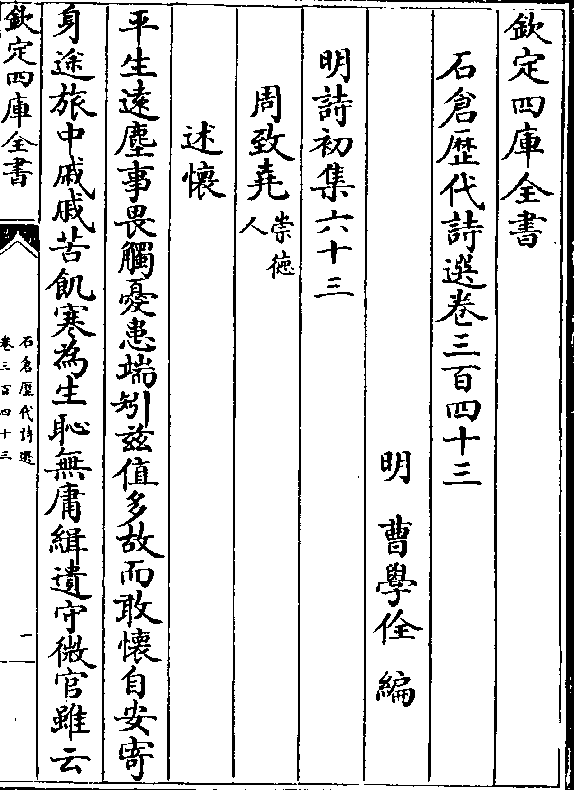 欽定四庫全書
石倉歷代詩選卷三百四十三
明 曹學佺 編
明詩初集六十三
周致堯 崇德人
述懷
平生遠塵事畏觸憂患端矧兹值多故而敢懷自安寄
身途旅中戚戚苦飢寒為生恥無庸緝遺守微官雖云
欽定四庫全書
石倉歷代詩選
卷三百四十三
一